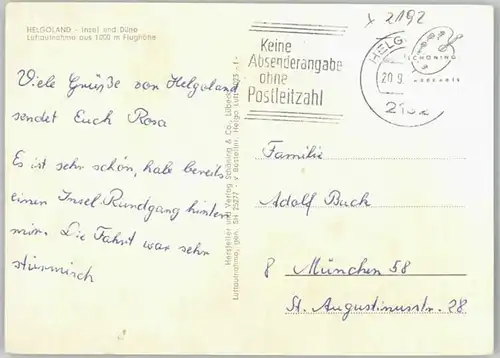 HELGOLAND - Insel und Düne
Luftaufnahme aus 1000 m Flughöhe
Viele Grüße von Helgoland
sendet Euch Rosa
Es ist sehr schön, habe bereits
einen Insel-Rundgang hinter
mir. Die Fahrt war sehr
stürmisch
2192
Keine
Absenderangabe
ohne
Postleitzahl
HELG
20.9.
SCHÖNING
Hersteller und Verlag Schöning & Co., Lübeck
Luftaufnahme, gen. SH
Familie
Adolf Buch
8 München 58
St. Augustinusstr. 28